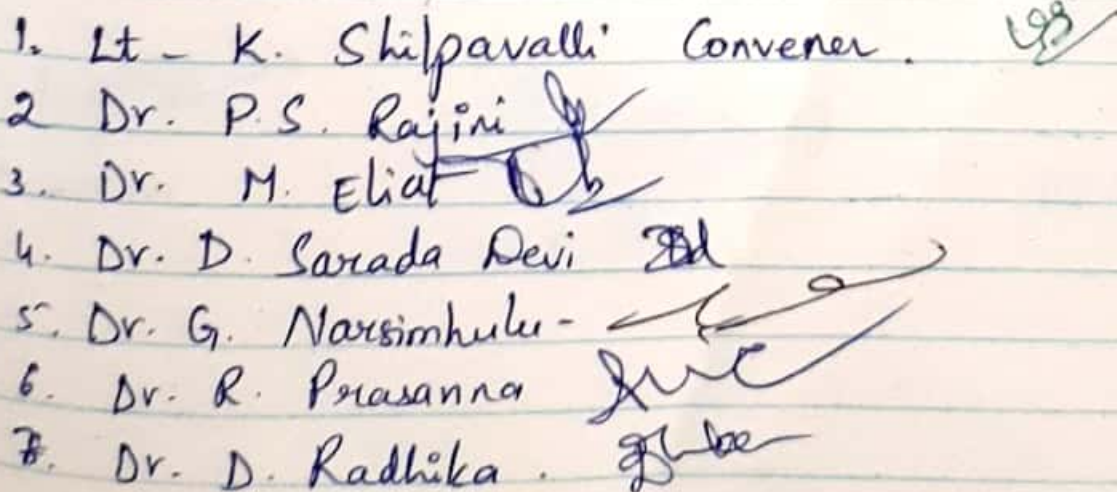 1. Lt - K. Shilpavalli Convener.
2 Dr. P.S. Rajini
3. Dr. M. Eliat
4. Dr. D. Sarada Devi
5. Dr. G. Narsimhulu-
6. Dr. R. Prasanna
7. Dr. D. Radhika.